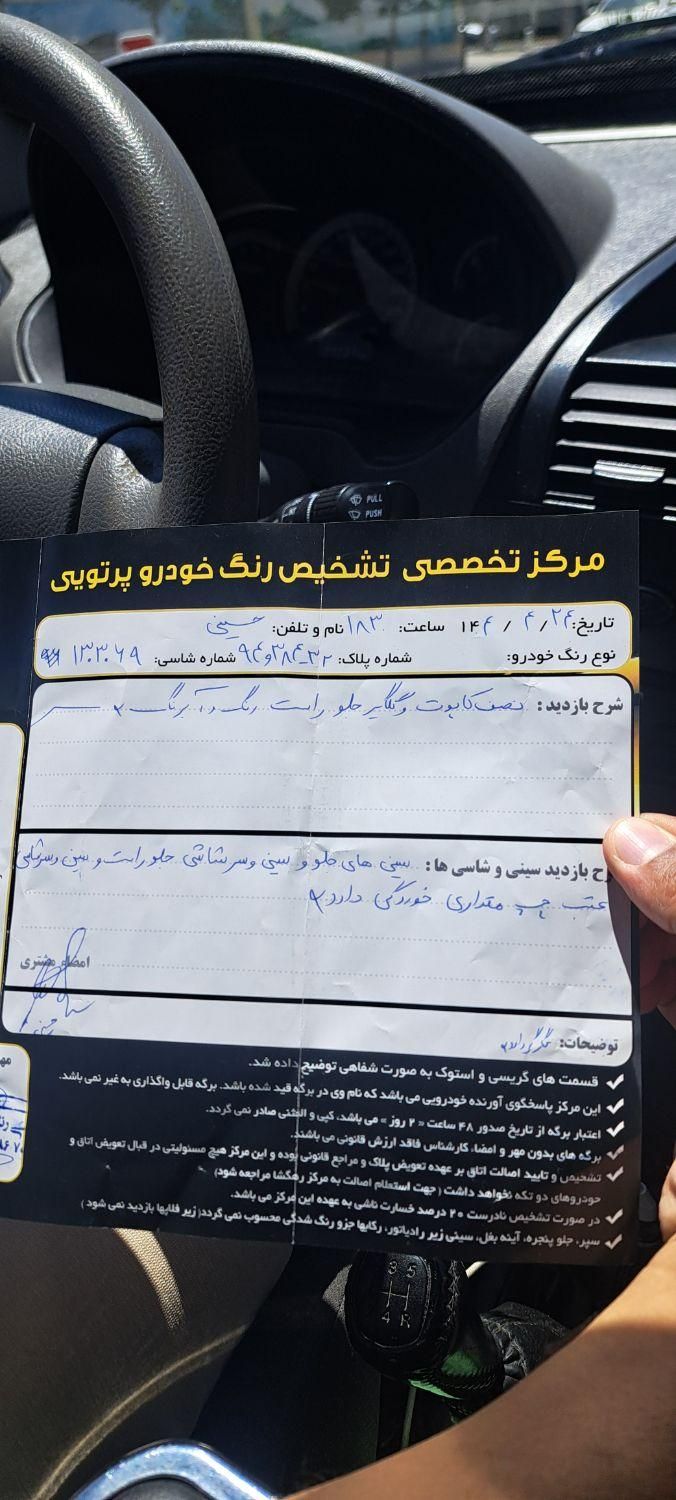 PULL
PUSH
مرکز تخصصی تشخیص رنگ خودرو پرتویی
تاریخ: ۲۴ / ۴ / ۱۴۰۴ ساعت: نام و تلفن: حسینی
نوع رنگ خودرو: شماره پلاک: شماره شاسی: ۱۳۰۳۰۶۹
شرح بازدید: نصف کاپوت و گلگیر جلو راست رنگ
شرح بازدید سینی و شاسی ها: سینی های جلو و سینی و سرشاسی جلو راست و سینی و سرشاسی
عقب چپ مقداری خوردگی دارد
امضاء مشتری
توضیحات:
قسمت های گریسی و استوک به صورت شفاهی توضیح داده شد.
این مرکز پاسخگوی آورنده خودرویی می باشد که نام وی در برگه قید شده باشد. برگه قابل واگذاری به غیر نمی باشد.
اعتبار برگه از تاریخ صدور ۴۸ ساعت « ۲ روز » می باشد، کپی و المثنی صادر نمی گردد.
برگه های بدون مهر و امضاء کارشناس فاقد ارزش قانونی می باشند.
تشخیص و تایید اصالت اتاق بر عهده تعویض پلاک و مراجع قانونی بوده و این مرکز هیچ مسئولیتی در قبال تعویض اتاق و
خودروهای دو تکه نخواهد داشت ( جهت استعلام اصالت به مرکز رهگشا مراجعه شود)
در صورت تشخیص نادرست ۲۰ درصد خسارت ناشی به عهده این مرکز می باشد.
سپر، جلو پنجره، آینه بغل، سینی زیر رادیاتور، رکابها جزو رنگ شدگی محسوب نمی گردد( زیر قلابها بازدید نمی شود )
3 5
4 R